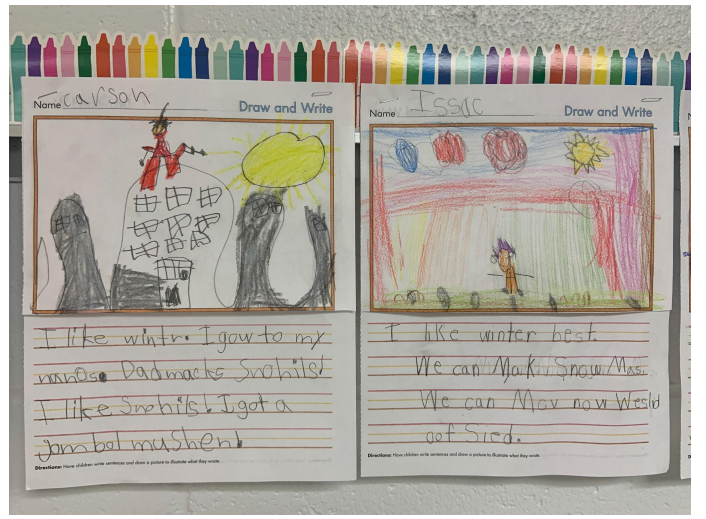 Name Carson
Draw and Write
I like wintr. I gow to my
nanose Dad macks Snohils!
I like Snohils! I got a
jambol mushen!
Directions: Have children write sentences and draw a picture to illustrate what they wrote.
Name Issac
Draw and Write
I like winter best.
We can Mak Snow Mas.
We can Mov now
oof Sled.
Directions: Have children write sentences and draw a picture to illustrate what they wrote.